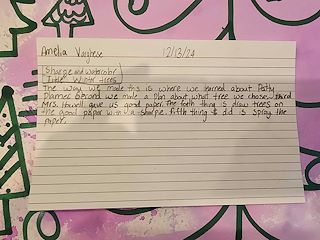 Amelia Varghese 12/13/24
Sharpe and watercolor
Title: Winter trees
The way we made this is where we learned about Patty
Danner. Second we made a plan about what tree we chose. third
Mrs. Howell gave us good paper. the forth thing is draw trees on
the good paper with a sharpie. Fifth thing I did is spray the
paper.